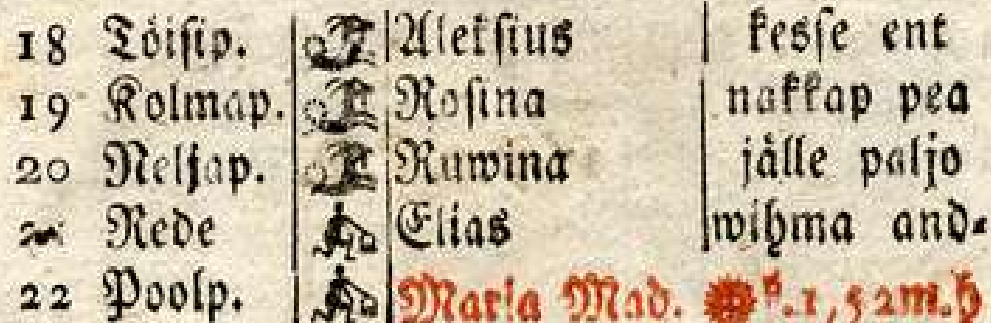 18 Töisip. Aleksius kesse ent
19 Kolmap. Rosina nakkap pea
20 Neljap. Ruwina jälle paljo
Rede Elias wihma and-
22 Poolp. Maria Mad. k. 1, 52 m. h